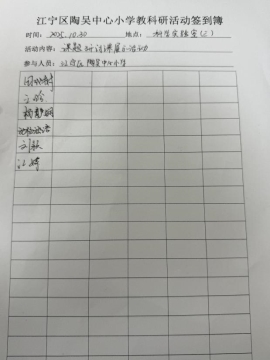 江宁区陶吴中心小学教科研活动签到簿
时间：2025.10.30 地点：科学实验室(二)
活动内容：课题研讨课展示活动
参与人员：江宁区陶吴中心小学
王玲
刘敏
江婷